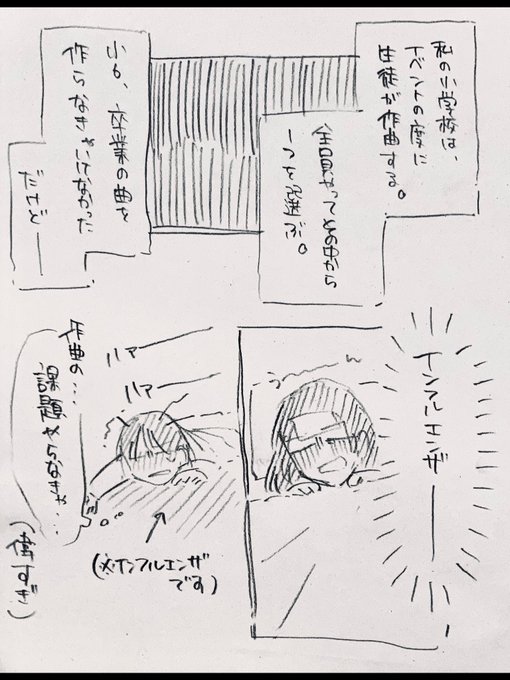 私の小学校は、
イベントの度に
生徒が作曲する。
全員やってその中から
一つを選ぶ。
小6、卒業の曲を
作らなきゃいけなかった
だけど――
インフルエンザ――
うーーん
ハァー
ハァー
作曲の...
課題やらなきゃ...
(※インフルエンザ
です)
(偉すぎ)